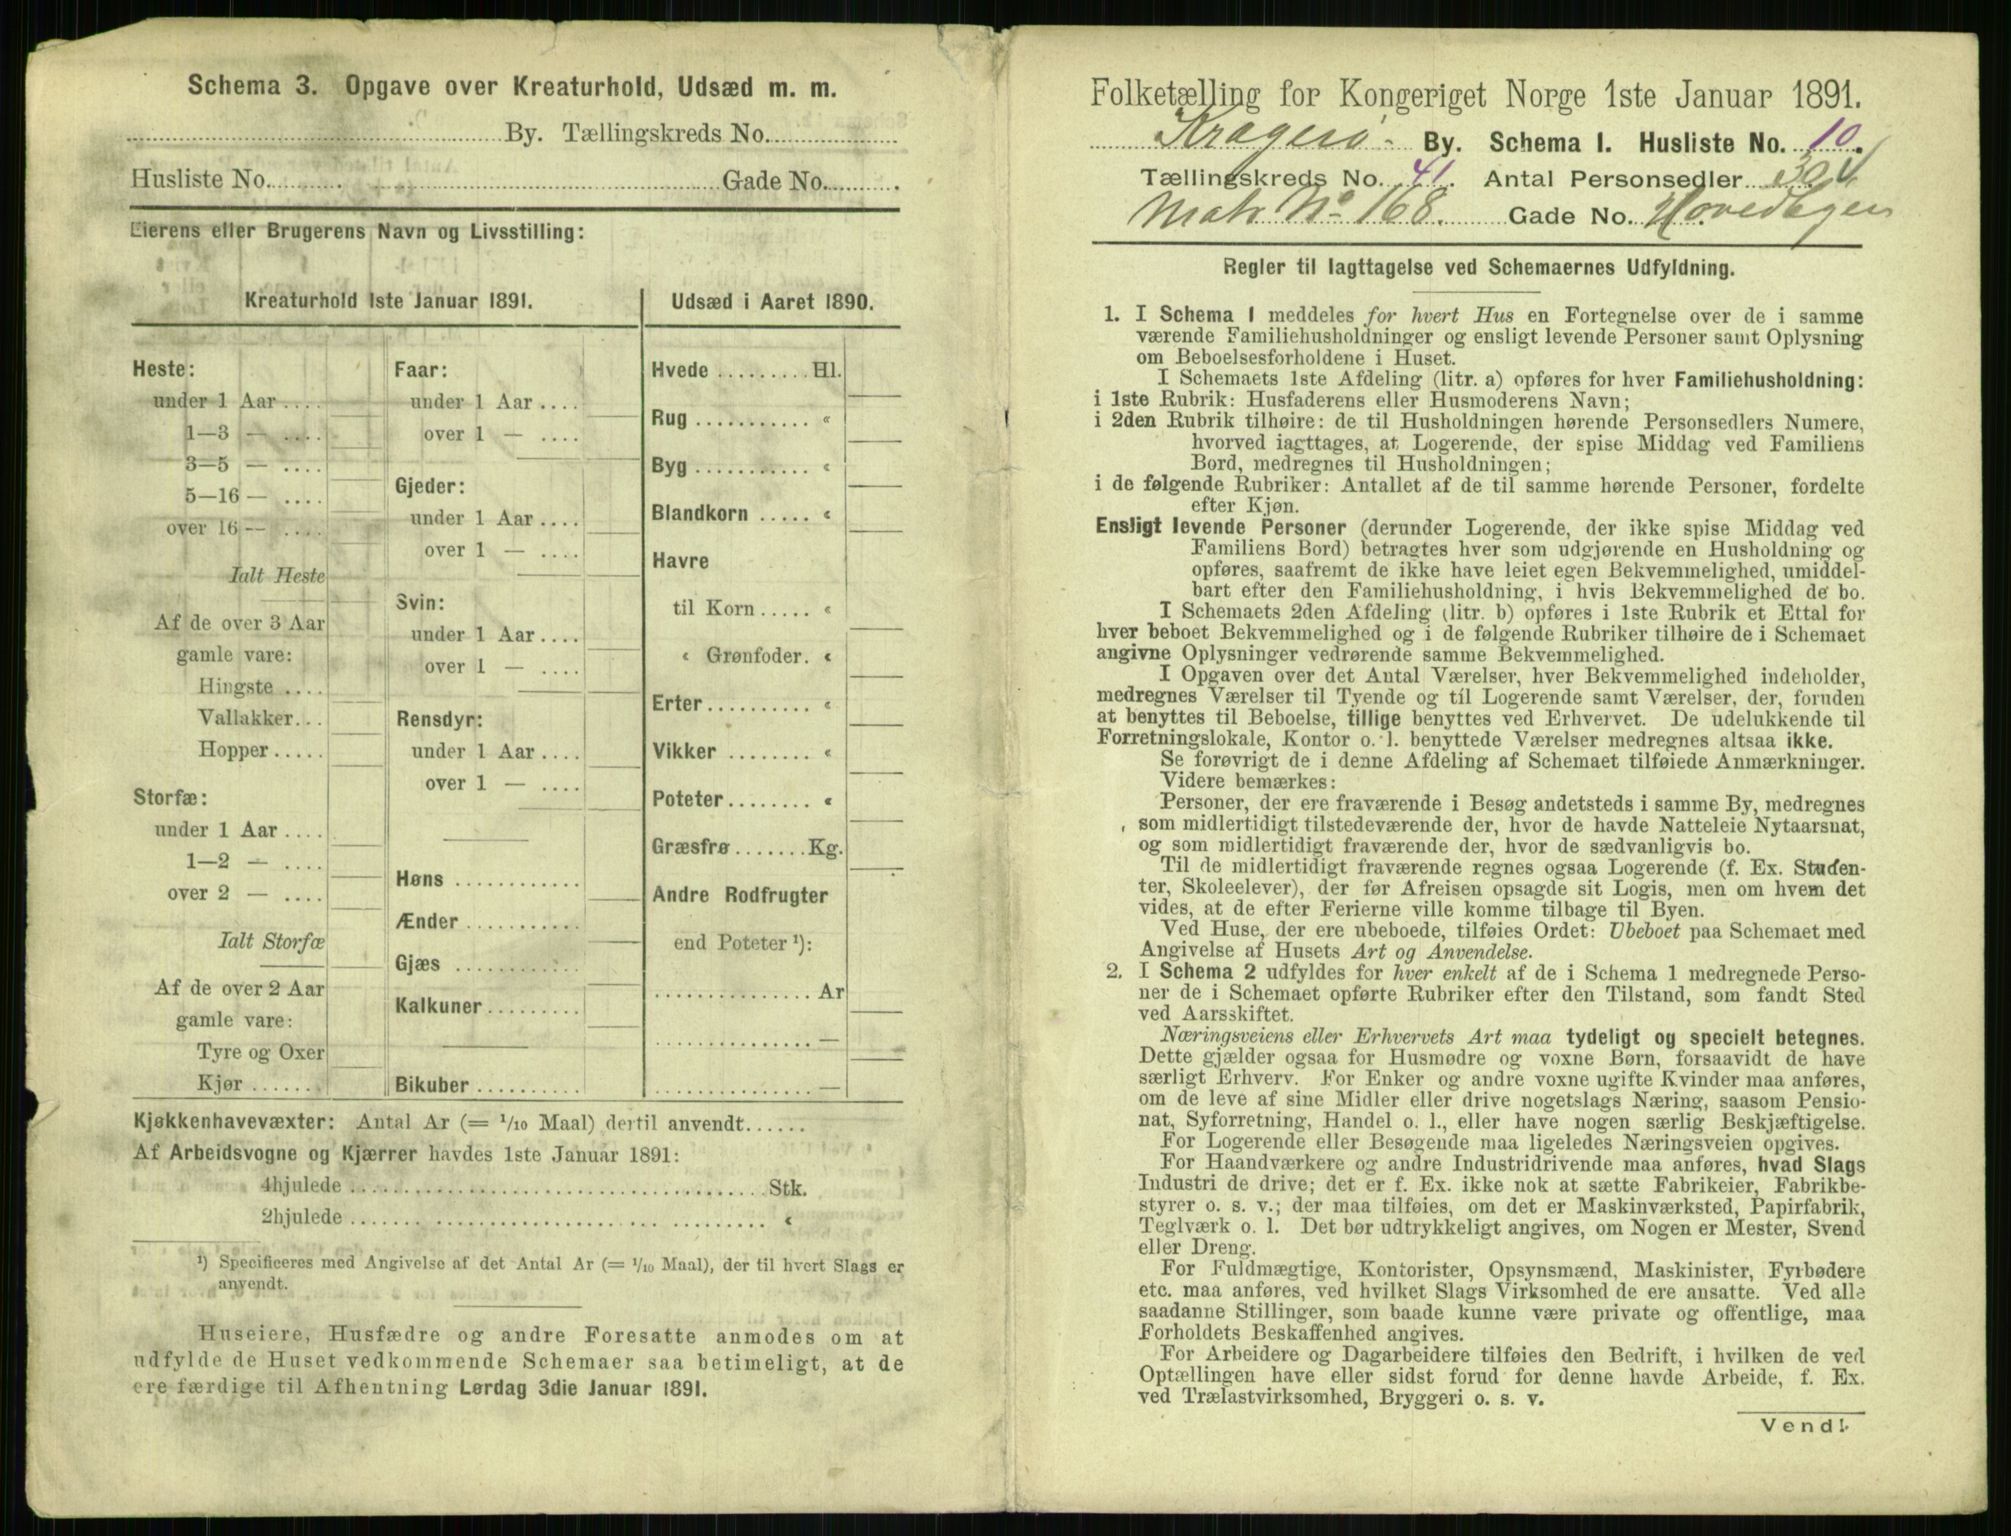 Schema 3. Opgave over Kreaturhold, Udsæd m. m.
By. Tællingskreds No.
Husliste No. Gade No.
Eierens eller Brugerens Navn og Livsstilling:
Kreaturhold 1ste Januar 1891.
Heste:
under 1 Aar ....
1—3 — ....
3—5 — ....
5—16 — ....
over 16 — ....
Ialt Heste
Af de over 3 Aar
gamle vare:
Hingste ....
Vallakker...
Hopper .....
Storfæ:
under 1 Aar ....
1—2 — ....
over 2 — ....
Ialt Storfæ
Af de over 2 Aar
gamle vare:
Tyre og Oxer
Kjør .......
Faar:
under 1 Aar ....
over 1 — ....
Gjeder:
under 1 Aar ....
over 1 — ....
Svin:
under 1 Aar ....
over 1 — ....
Rensdyr:
under 1 Aar ....
over 1 — ....
Høns ............
Ænder ...........
Gjæs ............
Kalkuner .........
Bikuber ..........
Udsæd i Aaret 1890.
Hvede ......... Hl.
Rug ........... «
Byg ........... «
Blandkorn ..... «
Havre
til Korn ..... «
« Grønfoder. «
Erter .......... «
Vikker ........ «
Poteter ........ «
Græsfrø ....... Kg.
Andre Rodfrugter
end Poteter ¹):
............... Ar
............... —
............... —
Kjøkkenhavevæxter: Antal Ar (= 1/10 Maal) dertil anvendt......
Af Arbeidsvogne og Kjærrer havdes 1ste Januar 1891:
4hjulede ........................................ Stk.
2hjulede ........................................ «
¹) Specificeres med Angivelse af det Antal Ar (= 1/10 Maal), der til hvert Slags er
anvendt.
Huseiere, Husfædre og andre Foresatte anmodes om at
udfylde de Huset vedkommende Schemaer saa betimeligt, at de
ere færdige til Afhentning Lørdag 3die Januar 1891.
Folketælling for Kongeriget Norge 1ste Januar 1891.
Kragerø By. Schema I. Husliste No. 10.
Tællingskreds No. 41. Antal Personsedler 304
Matr No 168. Gade No. Hovedbyen
Regler til Iagttagelse ved Schemaernes Udfyldning.
1. I Schema I meddeles for hvert Hus en Fortegnelse over de i samme
værende Familiehusholdninger og ensligt levende Personer samt Oplysning
om Beboelsesforholdene i Huset.
I Schemaets 1ste Afdeling (litr. a) opføres for hver Familiehusholdning:
i 1ste Rubrik: Husfaderens eller Husmoderens Navn;
i 2den Rubrik tilhøire: de til Husholdningen hørende Personsedlers Numere,
hvorved iagttages, at Logerende, der spise Middag ved Familiens
Bord, medregnes til Husholdningen;
i de følgende Rubriker: Antallet af de til samme hørende Personer, fordelte
efter Kjøn.
Ensligt levende Personer (derunder Logerende, der ikke spise Middag ved
Familiens Bord) betragtes hver som udgjørende en Husholdning og
opføres, saafremt de ikke have leiet egen Bekvemmelighed, umiddel-
bart efter den Familiehusholdning, i hvis Bekvemmelighed de bo.
I Schemaets 2den Afdeling (litr. b) opføres i 1ste Rubrik et Ettal for
hver beboet Bekvemmelighed og i de følgende Rubriker tilhøire de i Schemaet
angivne Oplysninger vedrørende samme Bekvemmelighed.
I Opgaven over det Antal Værelser, hver Bekvemmelighed indeholder,
medregnes Værelser til Tyende og til Logerende samt Værelser, der, foruden
at benyttes til Beboelse, tillige benyttes ved Erhvervet. De udelukkende til
Forretningslokale, Kontor o. l. benyttede Værelser medregnes altsaa ikke.
Se forøvrigt de i denne Afdeling af Schemaet tilføiede Anmærkninger.
Videre bemærkes:
Personer, der ere fraværende i Besøg andetsteds i samme By, medregnes
som midlertidigt tilstedeværende der, hvor de havde Natteleie Nytaarsnat,
og som midlertidigt fraværende der, hvor de sædvanligvis bo.
Til de midlertidigt fraværende regnes ogsaa Logerende (f. Ex. Studen-
ter, Skoleelever), der før Afreisen opsagde sit Logis, men om hvem det
vides, at de efter Ferierne ville komme tilbage til Byen.
Ved Huse, der ere ubeboede, tilføies Ordet: Ubeboet paa Schemaet med
Angivelse af Husets Art og Anvendelse.
2. I Schema 2 udfyldes for hver enkelt af de i Schema 1 medregnede Perso-
ner de i Schemaet opførte Rubriker efter den Tilstand, som fandt Sted
ved Aarsskiftet.
Næringsveiens eller Erhvervets Art maa tydeligt og specielt betegnes.
Dette gjælder ogsaa for Husmødre og voxne Børn, forsaavidt de have
særligt Erhverv. For Enker og andre voxne ugifte Kvinder maa anføres,
om de leve af sine Midler eller drive nogetslags Næring, saasom Pensio-
nat, Syforretning, Handel o. l., eller have nogen særlig Beskjæftigelse.
For Logerende eller Besøgende maa ligeledes Næringsveien opgives.
For Haandværkere og andre Industridrivende maa anføres, hvad Slags
Industri de drive; det er f. Ex. ikke nok at sætte Fabrikeier, Fabrikbe-
styrer o. s. v.; der maa tilføies, om det er Maskinværksted, Papirfabrik,
Teglværk o. l. Det bør udtrykkeligt angives, om Nogen er Mester, Svend
eller Dreng.
For Fuldmægtige, Kontorister, Opsynsmænd, Maskinister, Fyrbødere
etc. maa anføres, ved hvilket Slags Virksomhed de ere ansatte. Ved alle
saadanne Stillinger, som baade kunne være private og offentlige, maa
Forholdets Beskaffenhed angives.
For Arbeidere og Dagarbeidere tilføies den Bedrift, i hvilken de ved
Optællingen have eller sidst forud for denne havde Arbeide, f. Ex.
ved Trælastvirksomhed, Bryggeri o. s. v.
Vend!